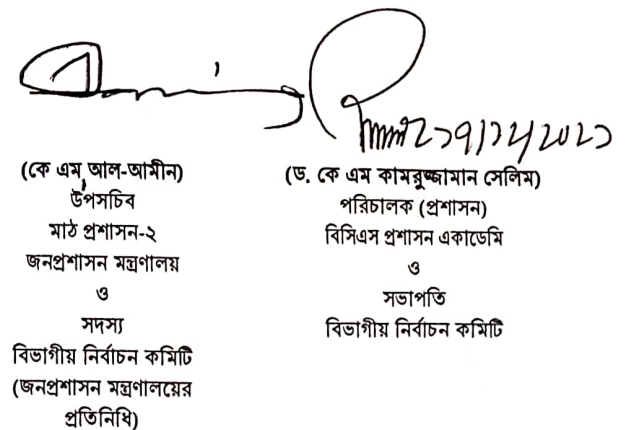 (কে এম আল-আমীন)
উপসচিব
মাঠ প্রশাসন-২
জনপ্রশাসন মন্ত্রণালয়
ও
সদস্য
বিভাগীয় নির্বাচন কমিটি
(জনপ্রশাসন মন্ত্রণালয়ের
প্রতিনিধি)
(ড. কে এম কামরুজ্জামান সেলিম)
পরিচালক (প্রশাসন)
বিসিএস প্রশাসন একাডেমি
ও
সভাপতি
বিভাগীয় নির্বাচন কমিটি